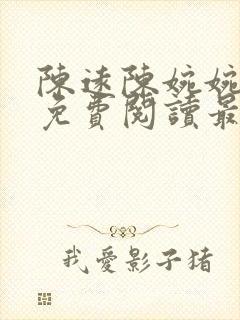 陳遠陳婉婉
免費閱讀最
我愛影子猪